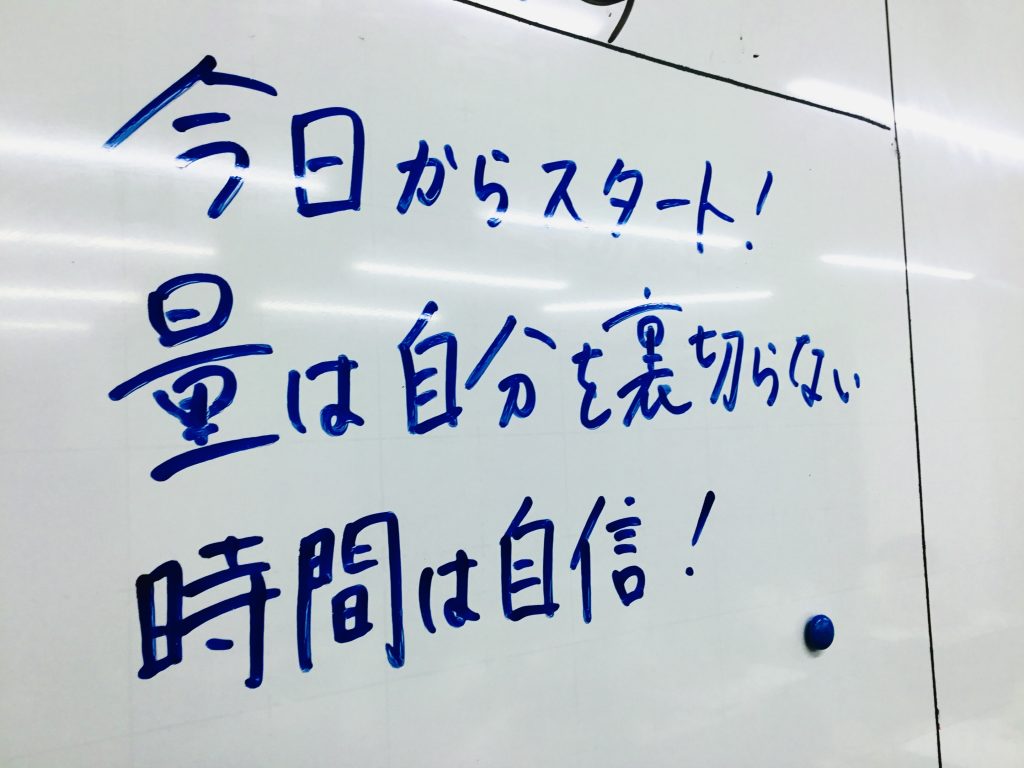 今日からスタート!
量は自分を裏切らない
時間は自信!